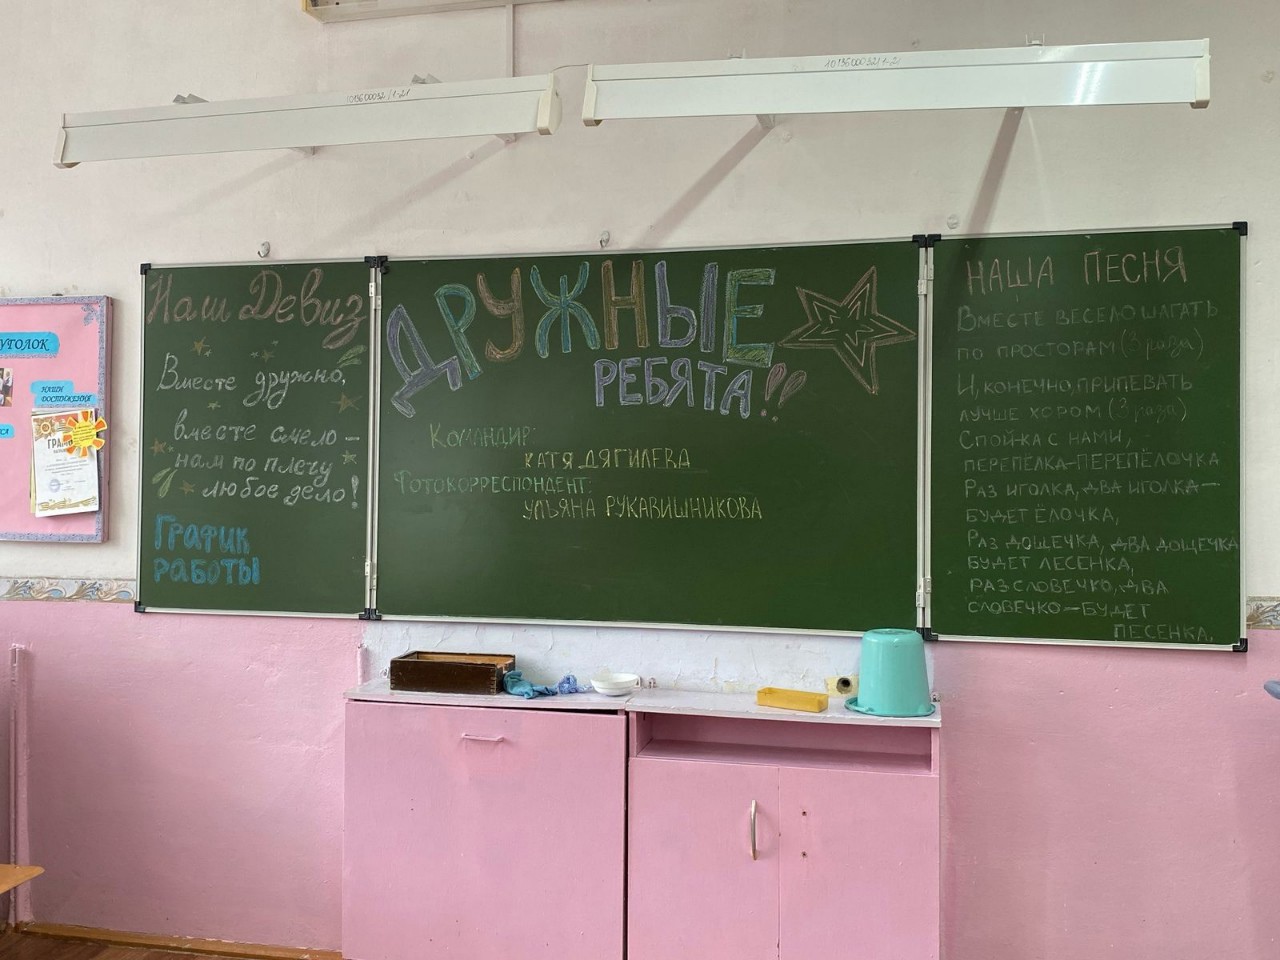 1013600032/1-21
1013600032/1-21
УГОЛОК
НАШИ
ДОСТИЖЕНИЯ
Наш Девиз
Вместе дружно,
вместе смело –
нам по плечу
любое дело!
ГРАФИК
РАБОТЫ
ДРУЖНЫЕ
РЕБЯТА!!
КОМАНДИР:
КАТЯ ДЯГИЛЕВА
ФОТОКОРРЕСПОНДЕНТ:
УЛЬЯНА РУКАВИШНИКОВА
НАША ПЕСНЯ
ВМЕСТЕ ВЕСЕЛО ШАГАТЬ
ПО ПРОСТОРАМ (3 раза)
И, КОНЕЧНО, ПРИПЕВАТЬ
ЛУЧШЕ ХОРОМ (3 раза)
СПОЙ-КА С НАМИ,
ПЕРЕПЁЛКА-ПЕРЕПЁЛОЧКА
РАЗ ИГОЛКА, ДВА ИГОЛКА –
БУДЕТ ЁЛОЧКА,
РАЗ ДОЩЕЧКА, ДВА ДОЩЕЧКА
БУДЕТ ЛЕСЕНКА,
РАЗ СЛОВЕЧКО, ДВА
СЛОВЕЧКО – БУДЕТ
ПЕСЕНКА.